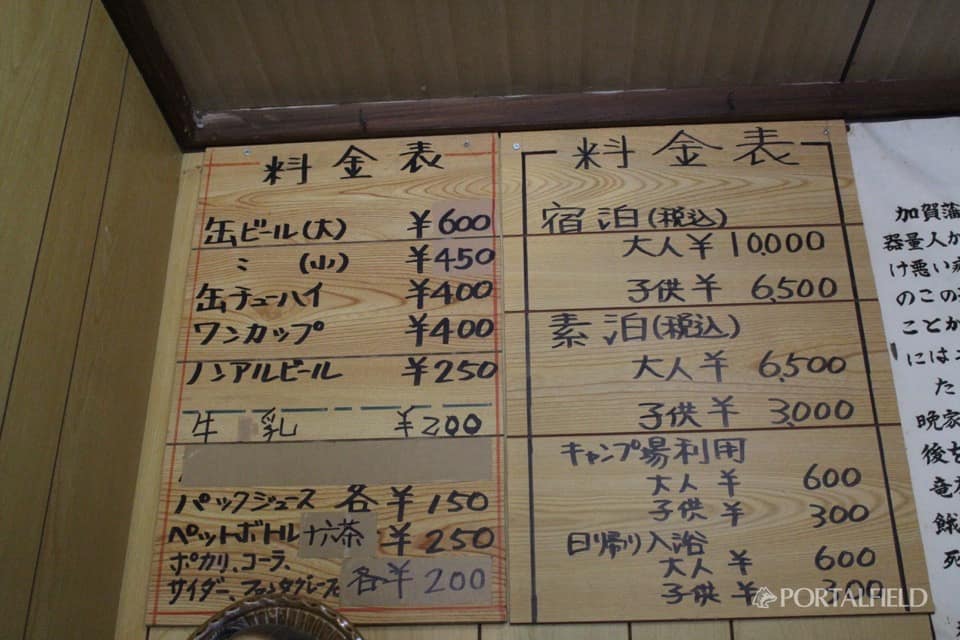 料金表
缶ビール(大) ¥600
〃 (小) ¥450
缶チューハイ ¥400
ワンカップ ¥400
ノンアルビール ¥250
牛乳 ¥200
パックジュース 各¥150
ペットボトル お茶 ¥250
ポカリ、コーラ、
サイダー、ファンタグレープ 各¥200
料金表
宿泊(税込)
大人¥ 10,000
子供¥ 6,500
素泊(税込)
大人¥ 6,500
子供¥ 3,000
キャンプ場利用
大人¥ 600
子供¥ 300
日帰り入浴
大人¥ 600
子供¥ 300
加賀藩
器量人か
け悪い
のこの
ことか
には
た
晩家
後を
竜
餓
死
PORTALFIELD